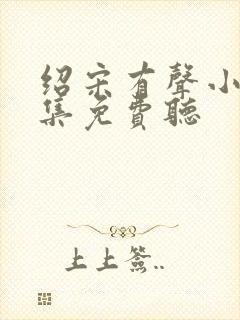 绍宋有聲小
集免費聽
上上簽..